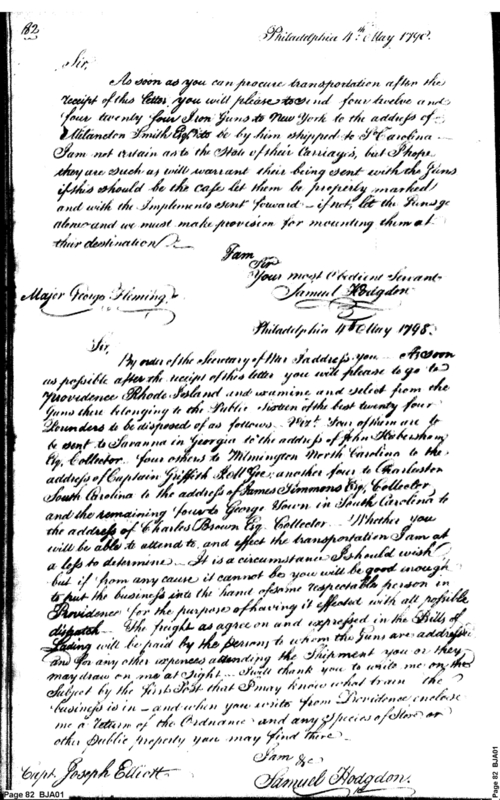 82
Philadelphia 4th May 1798.
Sir,
As soon as you can procure transportation after the
receipt of this Letter, you will please to send four twelve and
four twenty four Iron Guns to New York to the address of
Smith Esqr. to be by him shipped to So. Carolina
I am not certain as to the State of their Carriages, but I hope
they are such as will warrant their being sent with the Guns
if this should be the case let them be properly marked
and with the Implements sent forward — if not, let the Guns go
alone and we must make provision for mounting them at
their destination
I am
Sir
Your most Obedient Servant
Samuel Hodgdon
Major George Fleming
Philadelphia 4th May 1798.
Sir,
By order of the Secretary of War I address you — As soon
as possible after the receipt of this letter you will please to go to
Providence Rhode Island and examine and select from the
Guns there belonging to the Public Sixteen of the best twenty four
Pounders to be disposed of as follows. Vizt. Four of them are to
be sent to Savanna in Georgia to the address of John Habersham
Esq. Collector. four others to Wilmington North Carolina to the
address of Captain Griffith another four to Charleston
South Carolina to the address of James Simmons Esq. Collector
and the remaining four to George Town in South Carolina to
the address of Charles Brown Esq. Collector. Whether you
will be able to attend to, and effect the transportation I am at
a loss to determine — It is a circumstance I should wish
but if from any cause it cannot be you will be good enough
to put the business into the hand of some respectable person in
Providence for the purpose of having it effected with all possible
dispatch — The freight as agreed on and expressed in the Bills of
Lading will be paid by the persons to whom the Guns are addressed
and for any other expences attending the Shipment you or they
may draw on me at sight — I will thank you to write me on the
Subject by the first Post that I may know what train the
business is in — and when you write from Providence enclose
me a return of the Ordnance and any Species of Store or
other Public property you may find there —
I am &c
Samuel Hodgdon.
Capt. Joseph Elliott
Page 82 BJA01
Page 82 BJA01